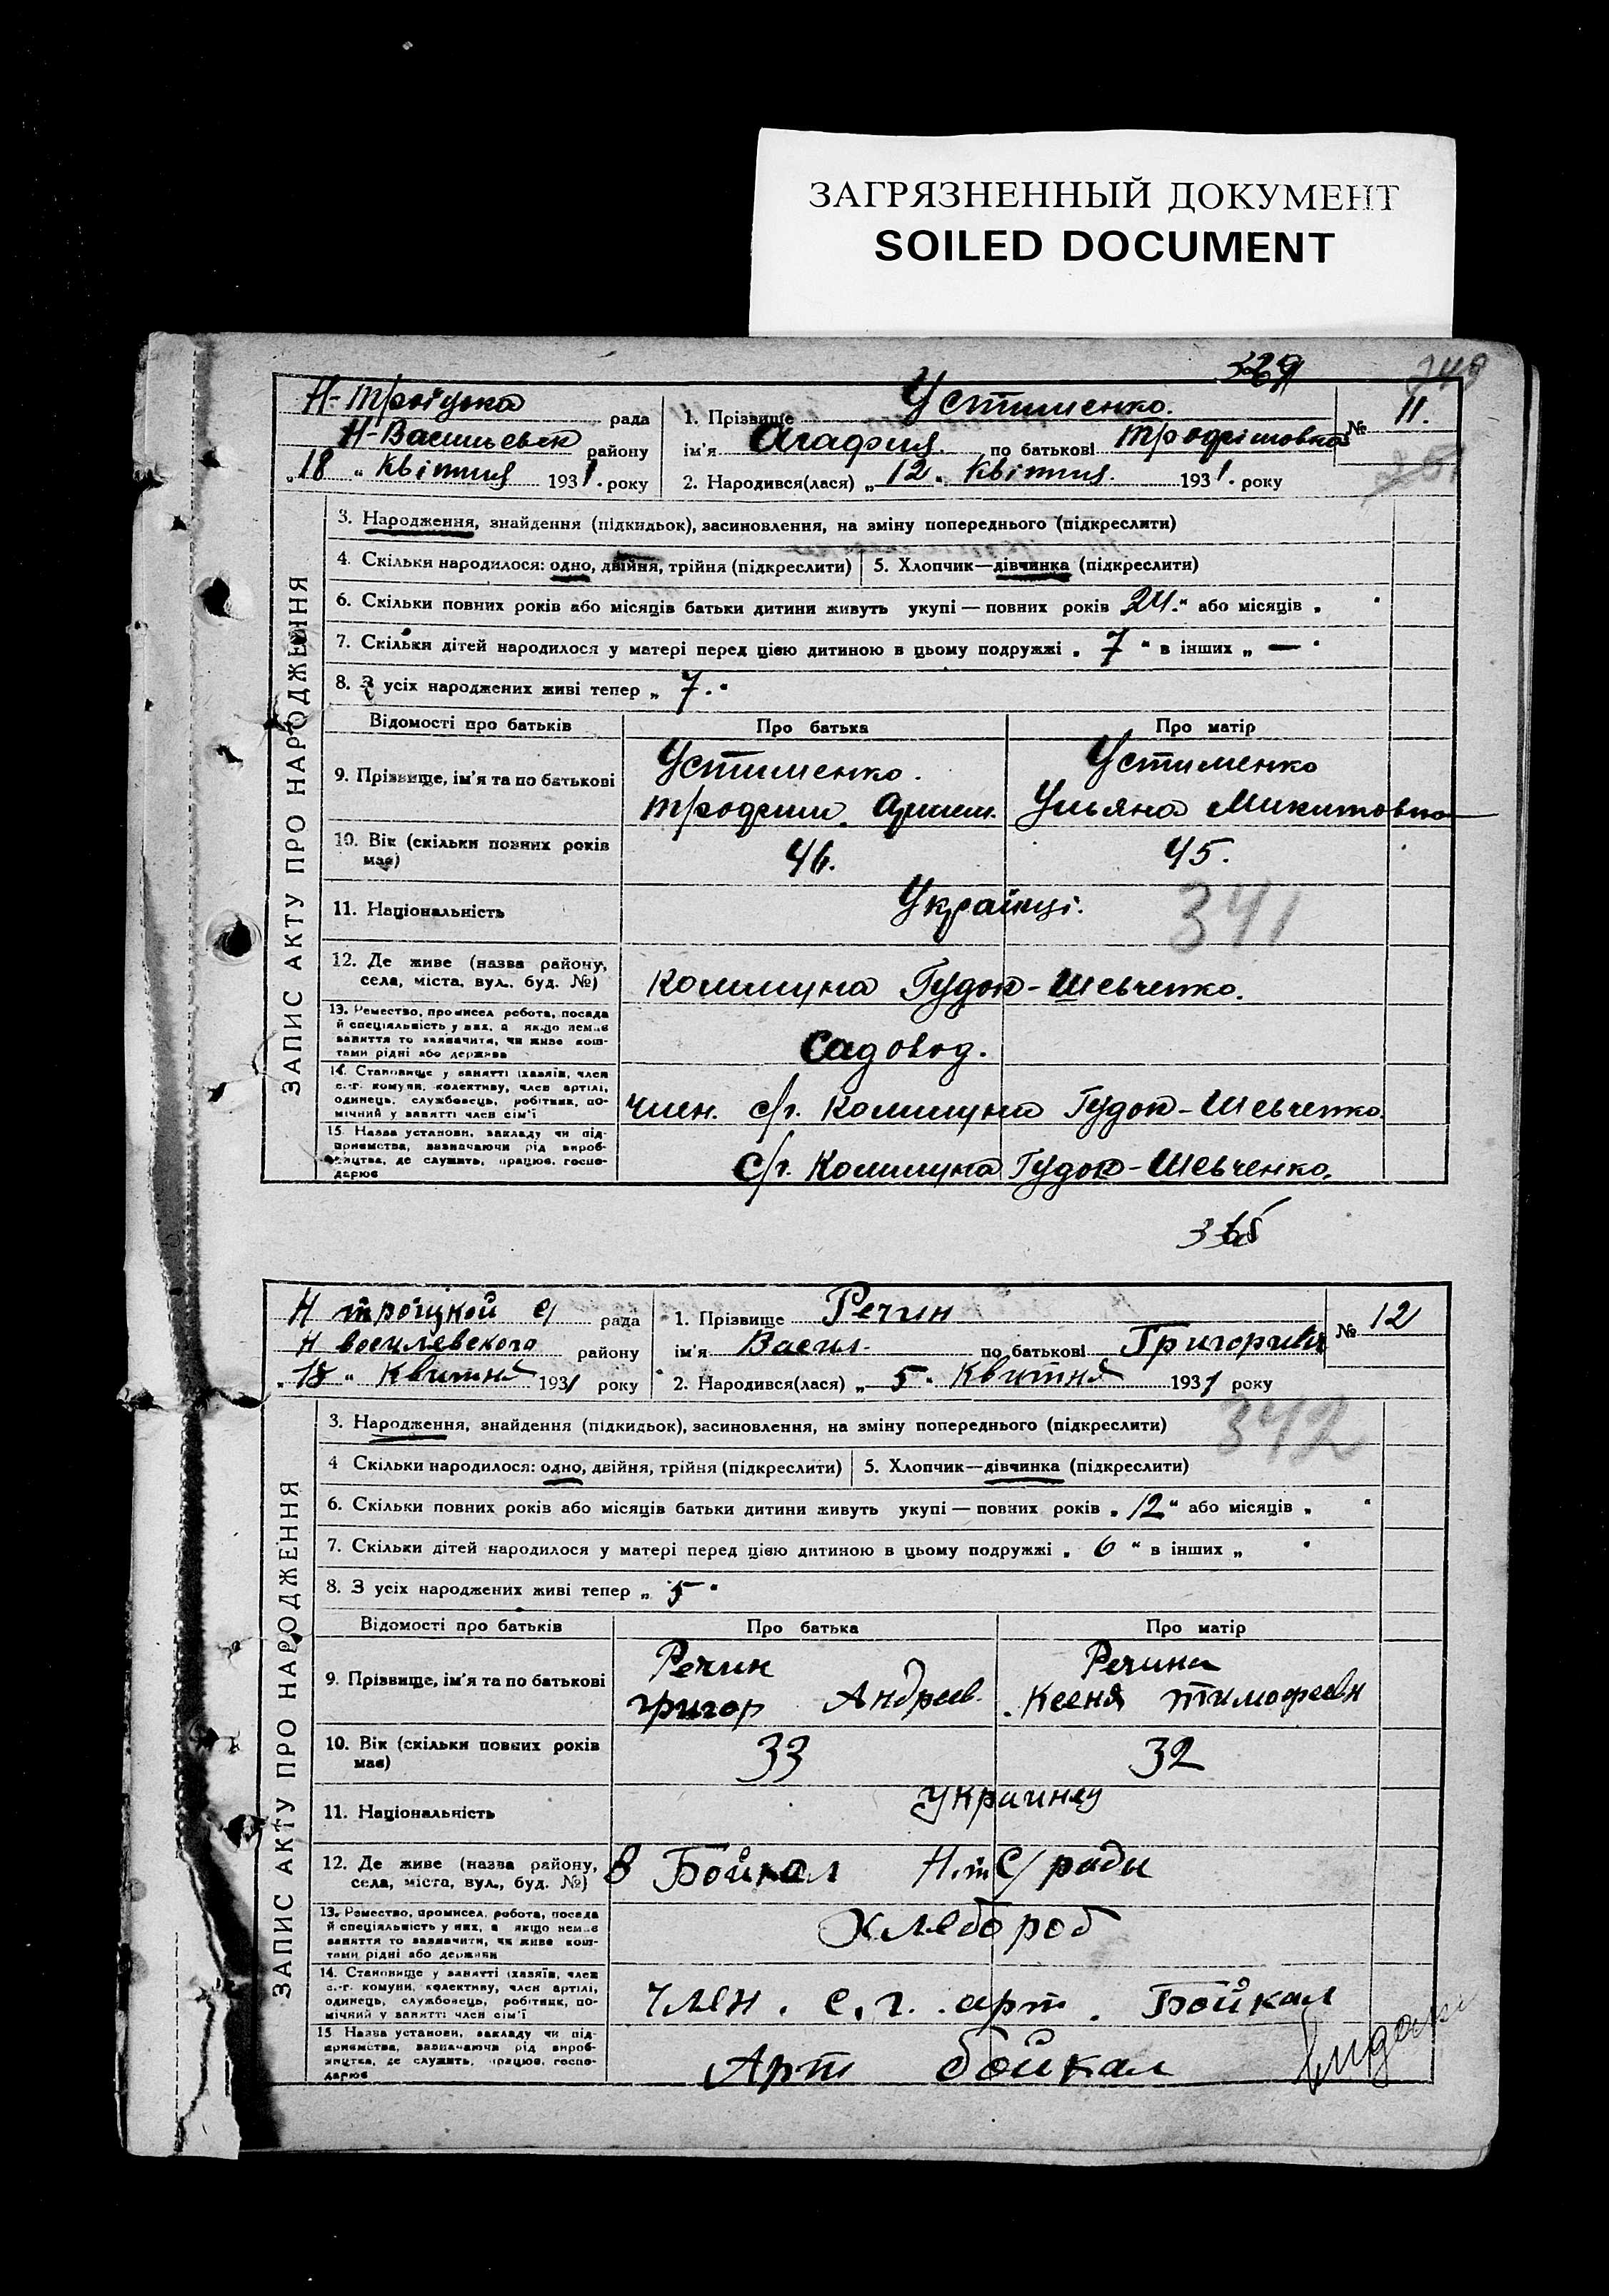 ЗАГРЯЗНЕННЫЙ ДОКУМЕНТ
SOILED DOCUMENT
Н-Троїцька рада
Н-Васильевск району
„18 “ Квітня 1931. року
1. Прізвище Устименко.
ім'я Агафия. по батькові Трофімовна
2. Народився(лася) „12“ Квітня. 1931. року
№ 11.
ЗАПИС АКТУ ПРО НАРОДЖЕННЯ
3. Народження, знайдення (підкидьок), засиновлення, на зміну попереднього (підкреслити)
4. Скільки народилося: одно, двійня, трійня (підкреслити) 5. Хлопчик—дівчинка (підкреслити)
6. Скільки повних років або місяців батьки дитини живуть укупі — повних років 24.“ або місяців „ “
7. Скільки дітей народилося у матері перед цією дитиною в цьому подружжі „ 7 “ в інших „ — “
8. З усіх народжених живі тепер „ 7. “
Відомості про батьків Про батька Про матір
9. Прізвище, ім'я та по батькові Устименко. Устименко
Трофим. Ульяна Микитовна
10. Вік (скільки повних років має) 46. 45.
11. Національність Українці. 341
12. Де живе (назва району,
села, міста, вул., буд. №) Коммуна Гудок-Шевченко.
13. Ремество, промисел, робота, посада
й спеціяльність у них, а якщо немає
заняття то зазначити, чи живе кош-
тами рідні або держави
Садовод.
14. Становище у занятті (хазяїн, член
с.-г. комуни, колективу, член артілі,
одинець, службовець, робітник, по-
мічний у занятті член сім'ї
член. с/г. Коммуна Гудок-Шевченко.
15. Назва установи, закладу чи під-
приємства, зазначаючи рід вироб-
ництва, де служить, працює, госпо-
дарює
с/г. Коммуна Гудок-Шевченко.
Н троїцкой с/ рада
Н василевского району
„18 “ Квитня 1931 року
1. Прізвище Речин
ім'я Васил. по батькові Григориев
2. Народився(лася) „ 5 “ Квитня 1931 року
№ 12
ЗАПИС АКТУ ПРО НАРОДЖЕННЯ
3. Народження, знайдення (підкидьок), засиновлення, на зміну попереднього (підкреслити)
342
4 Скільки народилося: одно, двійня, трійня (підкреслити) 5. Хлопчик—дівчинка (підкреслити)
6. Скільки повних років або місяців батьки дитини живуть укупі — повних років „ 12 “ або місяців „ “
7. Скільки дітей народилося у матері перед цією дитиною в цьому подружжі „ 6 “ в інших „ “
8. З усіх народжених живі тепер „ 5 “
Відомості про батьків Про батька Про матір
9. Прізвище, ім'я та по батькові Речин Речина
григор Андреев. Ксеня тимофеевн
10. Вік (скільки повних років має) 33 32
11. Національність украинцы
12. Де живе (назва району,
села, міста, вул., буд. №) в Бойкал Н.т С/ ради
13. Ремество, промисел, робота, посада
й спеціяльність у них, а якщо немає
заняття то зазначити, чи живе кош-
тами рідні або держави
Хлебороб
14. Становище у занятті (хазяїн, член
с.-г. комуни, колективу, член артілі,
одинець, службовець, робітник, по-
мічний у занятті член сім'ї
член. с.г. арт. Бойкал
15. Назва установи, закладу чи під-
приємства, зазначаючи рід вироб-
ництва, де служить, працює, госпо-
дарює
Арт бойкал